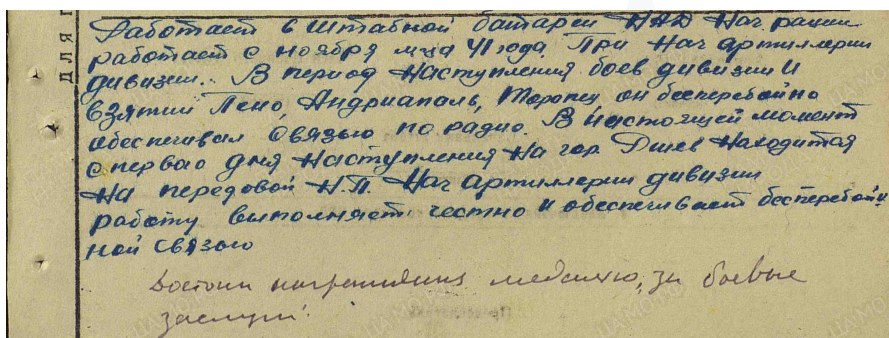 Работает в штабной батареи НАД Нач рации
работает с ноября м-ца 41 года. При Нач артиллерии
дивизии. В период наступления боев дивизии и
взятии Пено, Андриаполь, Торопец он бесперебойно
обеспечивал связью по радио. В настоящей момент
с первао дня наступления на гор. Находится
на передовой Н.П. Нач артиллерии дивизии
работу выполняет честно и обеспечивает бесперебой
ной связью
Достоин награждения медалью "за боевые
заслуги".
для